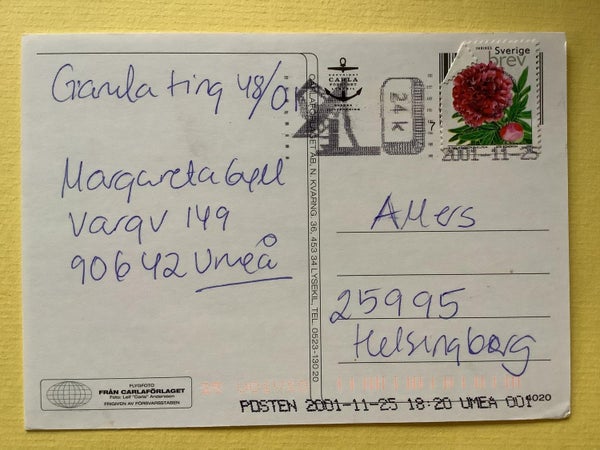 Gamla ting 48/01
Margareta Gyll
Vargv 149
90642 Umeå
FLYGFOTO
FRÅN CARLAFÖRLAGET
Foto: Leif "Carla" Andersson
FRIGIVEN AV FÖRSVARSSTABEN
COPYRIGHT
CARLA
CARLAFÖRLAGET AB, N. KVARNG. 36, 453 34 LYSEKIL, TEL. 0523-130 20
24 k
7
Sverige
brev
2001-11-25
Allers
25995
Helsingborg
POSTEN 2001-11-25 18:20 UMEA 001
4020